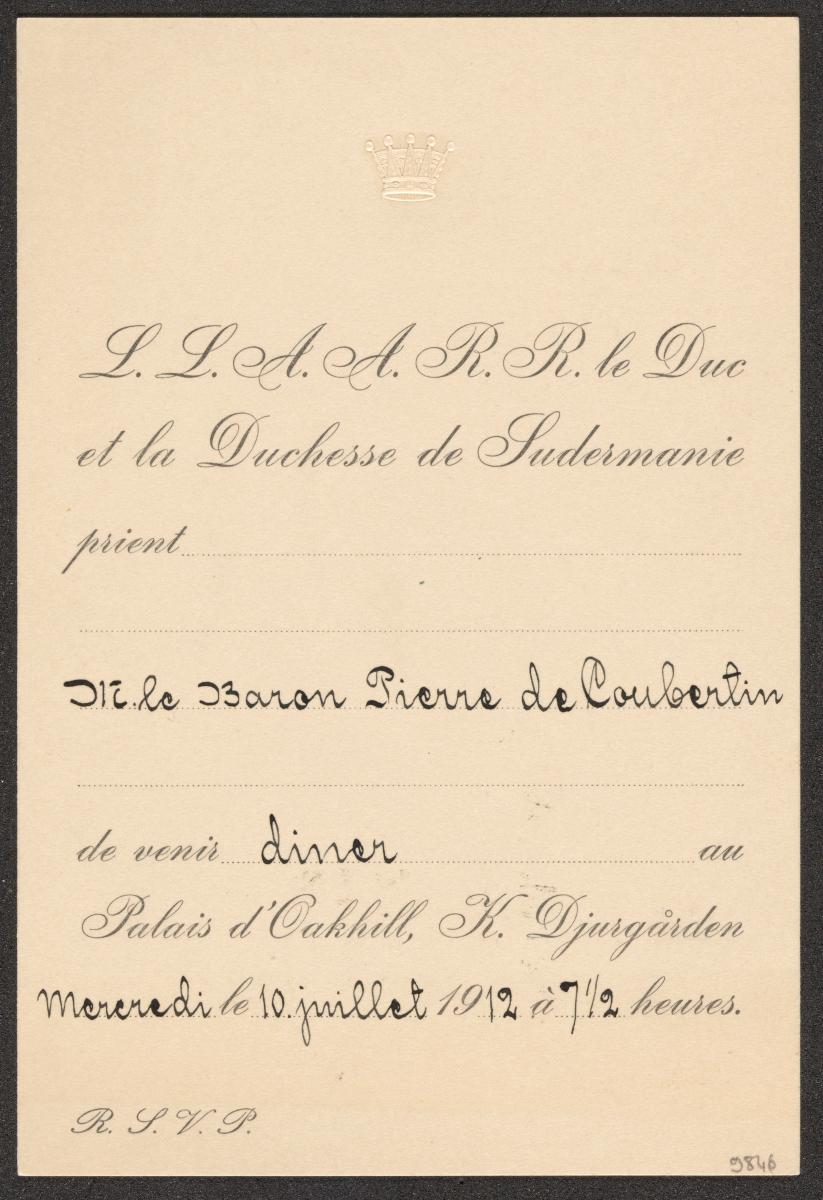 L. L. A. A. R. R. le Duc
et la Duchesse de Sudermanie
prient
M. le Baron Pierre de Coubertin
de venir diner au
Palais d'Oakhill, K. Djurgården
Mercredi le 10. juillet 1912 à 7 1/2 heures.
R. S. V. P.
9846